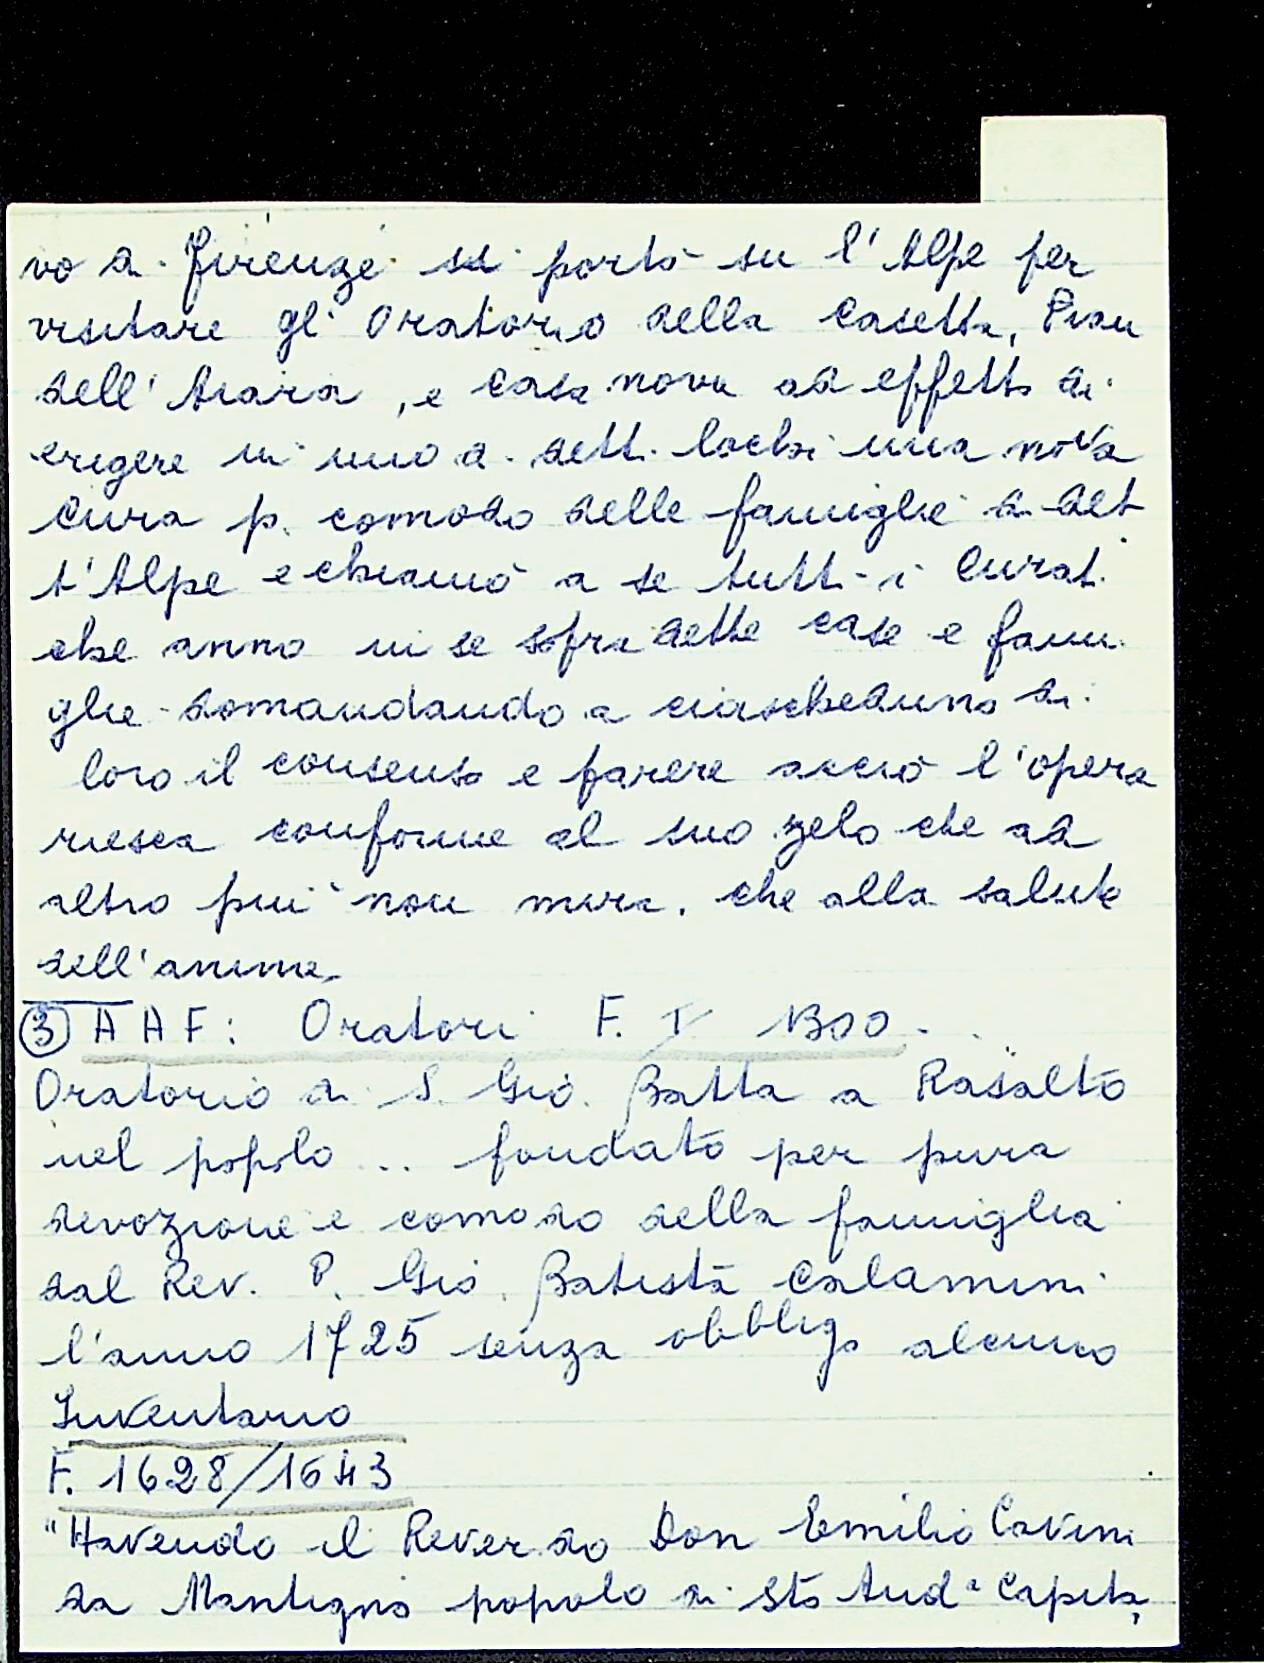 vo di Firenze si portò su l'Alpe per
visitare gl' Oratorio della Casetta, Pian
dell'Aiara, e Casa nova ad effetto di
erigere in uno di detti lochi una nova
Cura p. comodo delle famiglie di det
t'Alpe e chiamò a se tutti i Curati
che anno in se sopradette case e fami
glie domandando a ciascheduno di
loro il consenso e parere acciò l'opera
riesca conforme al suo zelo che ad
altro più non mira, che alla salute
dell'anime
③ A A F: Oratori F. V B00
Oratorio di S. Gio. Batta a Rasalto
nel popolo ... fondato per pura
devozione e comodo della famiglia
dal Rev. P. Gio. Batista Calamini
l'anno 1725 senza obbligo alcuno
Inventario
F. 1628/1643
"Havendo il Reverdo Don Emilio Cavini
da Mantigno popolo di Sto Andª Capita,